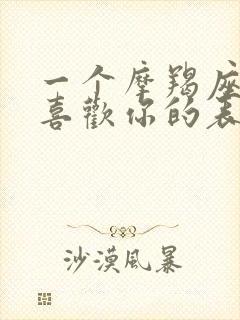 一个摩羯座
喜歡你的表
沙漠風暴